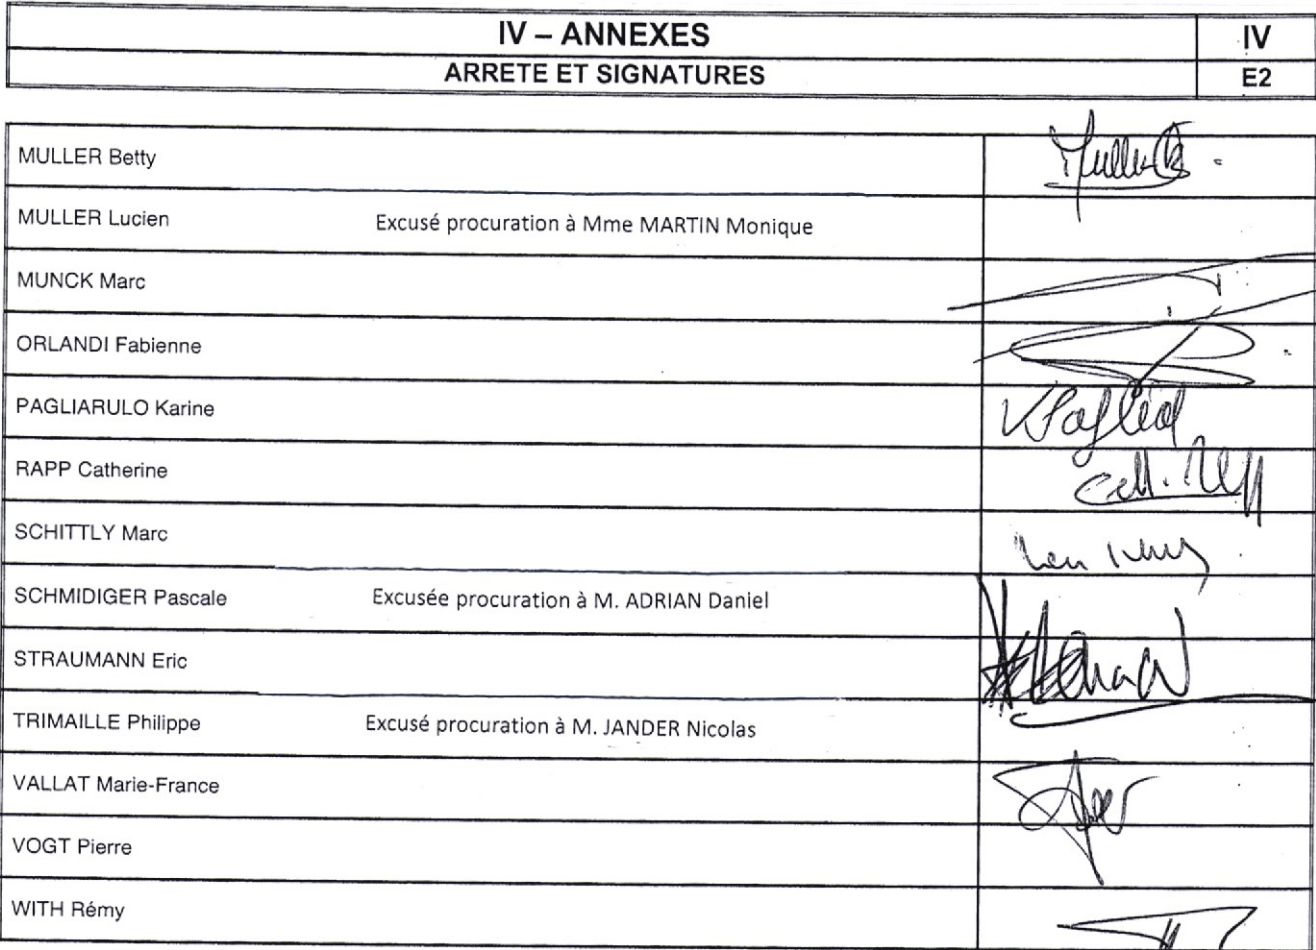 IV – ANNEXES IV
ARRETE ET SIGNATURES E2
MULLER Betty
MULLER Lucien Excusé procuration à Mme MARTIN Monique
MUNCK Marc
ORLANDI Fabienne
PAGLIARULO Karine
RAPP Catherine
SCHITTLY Marc
SCHMIDIGER Pascale Excusée procuration à M. ADRIAN Daniel
STRAUMANN Eric
TRIMAILLE Philippe Excusé procuration à M. JANDER Nicolas
VALLAT Marie-France
VOGT Pierre
WITH Rémy